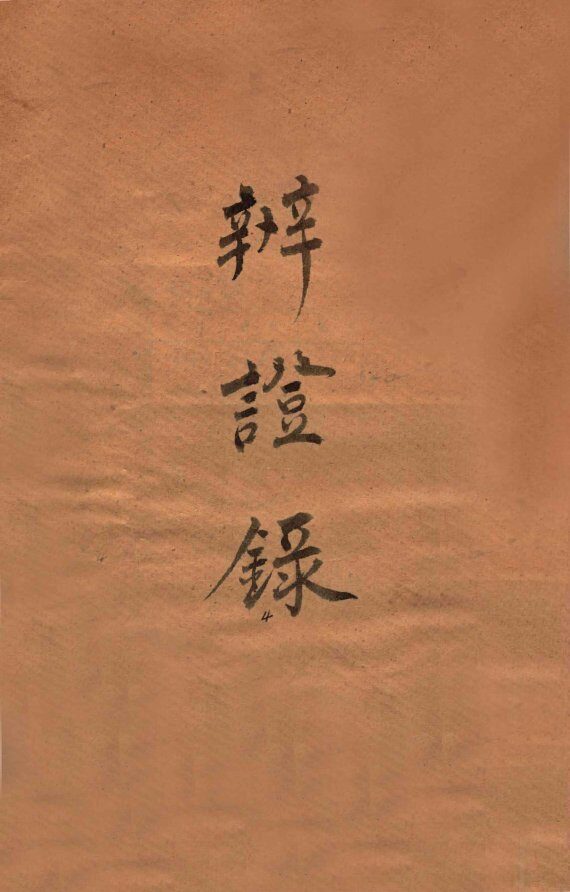 辨證錄
4